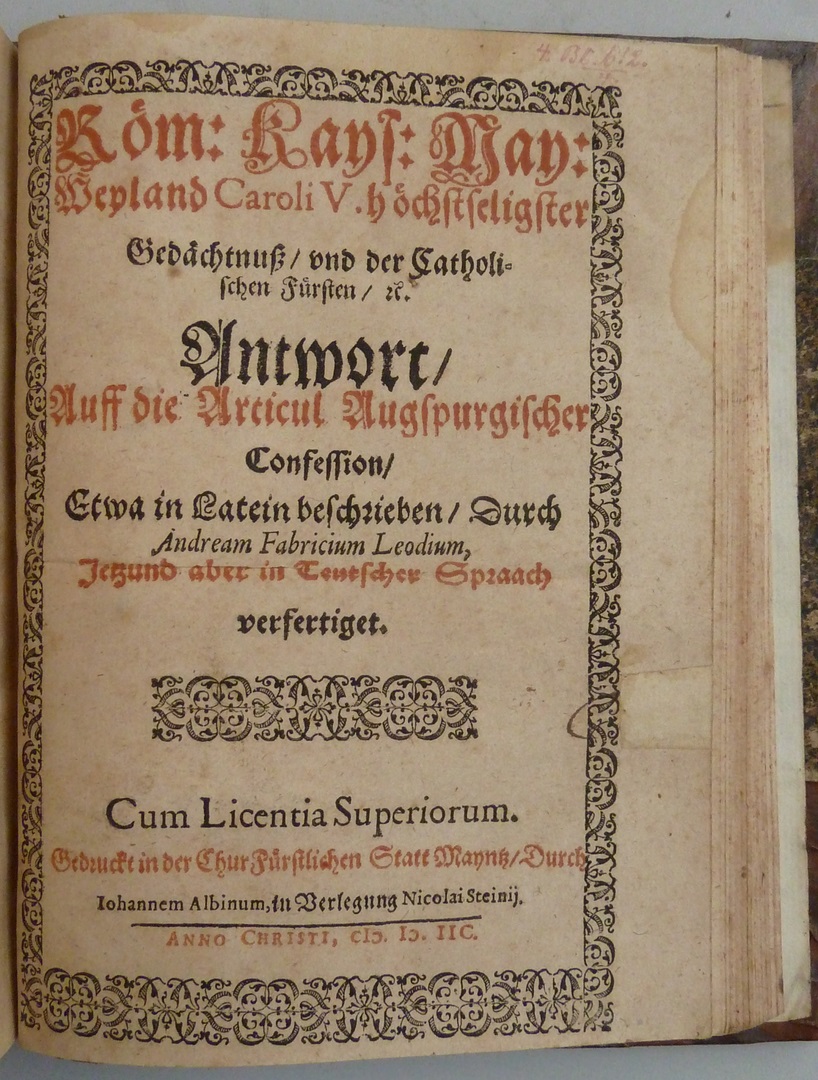 4. BC. 612.
Röm: Kayſ: May:
Weyland Caroli V. höchſtſeligſter
Gedächtnuß / vnd der Catholi-
ſchen Fürſten / ꝛc.
Antwort /
Auff die Articul Augſpurgiſcher
Confeſſion /
Etwa in Latein beſchrieben / Durch
Andream Fabricium Leodium,
Jetzund aber in Teutſcher Spraach
verfertiget.
Cum Licentia Superiorum.
Gedruckt in der ChurFürſtlichen Statt Mayntz / Durch
Iohannem Albinum, in Verlegung Nicolai Steinij.
ANNO CHRISTI, CIↃ. IↃ. IIC.